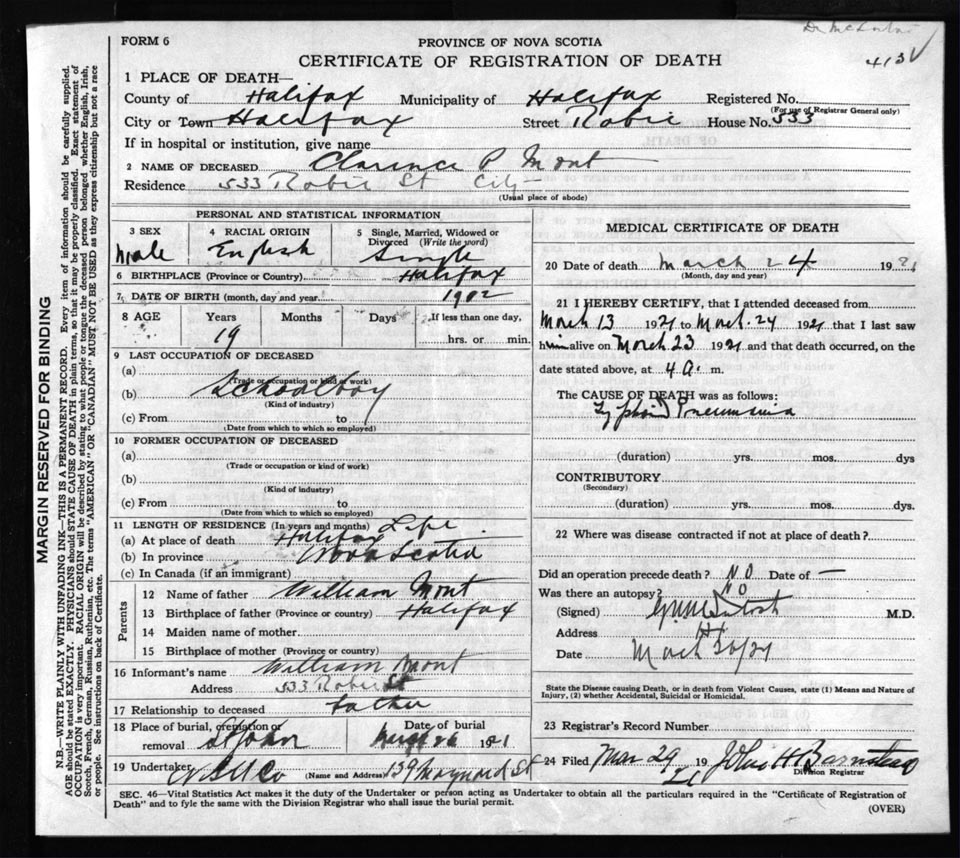 FORM 6
PROVINCE OF NOVA SCOTIA
CERTIFICATE OF REGISTRATION OF DEATH
413
MARGIN RESERVED FOR BINDING
N.B.—WRITE PLAINLY WITH UNFADING INK—THIS IS A PERMANENT RECORD. Every item of information should be carefully supplied.
AGE should be stated EXACTLY. PHYSICIANS should STATE CAUSE OF DEATH in plain terms, so that it may be properly classified. Exact statement of
OCCUPATION is very important. RACIAL ORIGIN will be described by stating to what people or tongue the deceased person belonged whether English, Irish,
Scotch, French, German, Russian, Ruthenian, etc. The terms "AMERICAN" OR "CANADIAN" MUST NOT BE USED as they express citizenship but not a race
or people. See instructions on back of Certificate.
1 PLACE OF DEATH—
County of Halifax Municipality of Halifax Registered No.
(For use of Registrar General only)
City or Town Halifax Street Robie House No. 533
If in hospital or institution, give name
2 NAME OF DECEASED Clarence P Mont
Residence 533 Robie St City
(Usual place of abode)
PERSONAL AND STATISTICAL INFORMATION
3 SEX
Male
4 RACIAL ORIGIN
English
5 Single, Married, Widowed or
Divorced (Write the word)
Single
6 BIRTHPLACE (Province or Country) Halifax
7 DATE OF BIRTH (month, day and year) 1902
8 AGE Years Months Days If less than one day,
19 hrs. or min.
9 LAST OCCUPATION OF DECEASED
(a)
(Trade or occupation or kind of work)
(b) Schoolboy
(Kind of industry)
(c) From to
(Date from which to which so employed)
10 FORMER OCCUPATION OF DECEASED
(a)
(Trade or occupation or kind of work)
(b)
(Kind of industry)
(c) From to
(Date from which to which so employed)
11 LENGTH OF RESIDENCE (In years and months) Life
(a) At place of death Halifax
(b) In province Nova Scotia
(c) In Canada (if an immigrant)
Parents
12 Name of father William Mont
13 Birthplace of father (Province or country) Halifax
14 Maiden name of mother
15 Birthplace of mother (Province or country)
16 Informant's name William Mont
Address 533 Robie St
17 Relationship to deceased Father
18 Place of burial, cremation or
removal St John
Date of burial
March 26 1921
19 Undertaker N S U Co (Name and Address) 139 Maynard St
MEDICAL CERTIFICATE OF DEATH
20 Date of death March 24 1921
(Month, day and year)
21 I HEREBY CERTIFY, that I attended deceased from
March 13 1921 to March 24 1921 that I last saw
him alive on March 23 1921 and that death occurred, on the
date stated above, at 4 a. m.
The CAUSE OF DEATH was as follows:
Typhoid Pneumonia
(duration) yrs. mos. dys
CONTRIBUTORY
(Secondary)
(duration) yrs. mos. dys
22 Where was disease contracted if not at place of death?
Did an operation precede death? NO Date of —
Was there an autopsy? NO
(Signed) M.D.
Address
Date March 26/21
State the Disease causing Death, or in death from Violent Causes, state (1) Means and Nature of
Injury, (2) whether Accidental, Suicidal or Homicidal.
23 Registrar's Record Number
24 Filed Mar 29 1921 John H Barnstead
Division Registrar
SEC. 46—Vital Statistics Act makes it the duty of the Undertaker or person acting as Undertaker to obtain all the particulars required in the "Certificate of Registration of
Death" and to fyle the same with the Division Registrar who shall issue the burial permit.
(OVER)